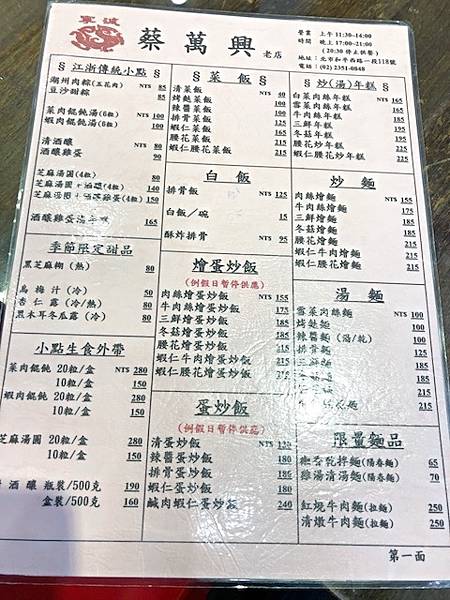 寧波
蔡萬興 老店
營業 上午 11:30-14:00
時間 晚上 17:00-21:00
(20:30 停止供餐)
地址：北市和平西路一段118號
電話：(02) 2351-0848
§ 江浙傳統小點 §
湖州肉粽(五花肉) NT$ 85
豆沙甜粽 85
菜肉餛飩湯(6粒) NT$ 100
蝦肉餛飩湯(6粒) 100
清酒釀 NT$ 80
酒釀雞蛋 90
芝麻湯圓(4粒) 80
芝麻湯圓+酒釀(4粒) 140
芝麻湯圓+酒釀雞蛋(4粒) 150
酒釀雞蛋湯年糕 165
季節限定甜品
黑芝麻糊 (熱) 80
烏梅汁 (冷) 50
杏仁露 (冷/熱) 80
黑木耳冬瓜露 (冷) 80
小點生食外帶
菜肉餛飩 20粒/盒 NT$ 280
10粒/盒 150
蝦肉餛飩 20粒/盒 280
10粒/盒 150
芝麻湯圓 20粒/盒 280
10粒/盒 150
酒釀 瓶裝/500克 190
盒裝/500克 160
§ 菜飯 §
清菜飯 NT$ 40
烤麩菜飯 100
辣醬菜飯 100
排骨菜飯
蝦仁菜飯
腰花菜飯
蝦仁腰花菜飯
白飯
排骨飯 NT$ 125
白飯/碗 15
酥炸排骨 NT$ 95
燴蛋炒飯
(例假日暫停供應)
肉絲燴蛋炒飯 NT$ 155
牛肉燴蛋炒飯 175
三鮮燴蛋炒飯 185
冬菇燴蛋炒飯 185
腰花燴蛋炒飯 215
蝦仁牛肉燴蛋炒飯 215
蝦仁腰花燴蛋炒飯 215
蛋炒飯
(例假日暫停供應)
清蛋炒飯 NT$ 120
辣醬蛋炒飯 180
排骨蛋炒飯 205
蝦仁蛋炒飯 205
鹹肉蝦仁蛋炒飯 240
§ 炒(湯)年糕 §
白菜肉絲年糕 NT$ 165
雪菜肉絲年糕 165
牛肉年糕 195
三鮮年糕 195
冬菇年糕 195
腰花炒年糕 225
蝦仁炒年糕 225
炒麵
肉絲燴麵 NT$ 155
牛肉絲燴麵 175
三鮮燴麵 185
冬菇燴麵 185
腰花燴麵 215
蝦仁牛肉燴麵 215
蝦仁腰花燴麵 215
湯麵
雪菜肉絲麵 NT$ 100
烤麩麵 100
辣醬麵 (湯/乾) 100
排骨麵
三鮮麵
冬菇麵
限量麵品
乾拌麵(陽春麵) 65
雞湯清湯麵(陽春麵) 70
紅燒牛肉麵(拉麵) 250
清燉牛肉麵(拉麵) 250
第一面